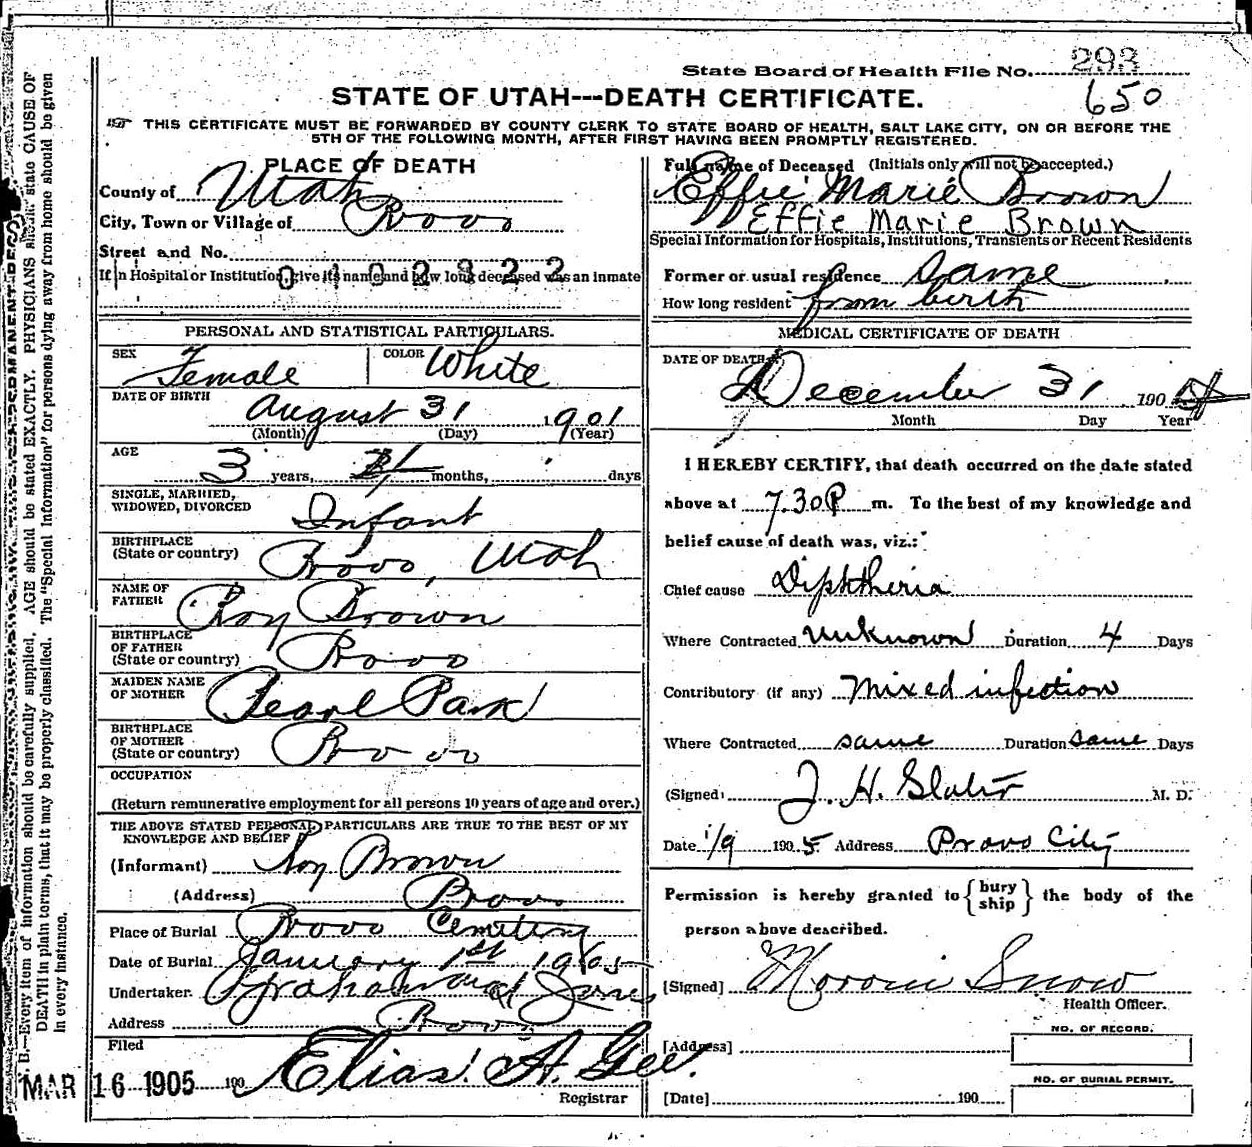 State Board of Health File No. 293
650
STATE OF UTAH---DEATH CERTIFICATE.
THIS CERTIFICATE MUST BE FORWARDED BY COUNTY CLERK TO STATE BOARD OF HEALTH, SALT LAKE CITY, ON OR BEFORE THE
5TH OF THE FOLLOWING MONTH, AFTER FIRST HAVING BEEN PROMPTLY REGISTERED.
PLACE OF DEATH
County of Utah
City, Town or Village of Provo
Street and No.
If in Hospital or Institution give its name and how long deceased was an inmate
0102322
PERSONAL AND STATISTICAL PARTICULARS.
SEX Female COLOR White
DATE OF BIRTH
August 31 1901
(Month) (Day) (Year)
AGE
3 years, months, days
SINGLE, MARRIED,
WIDOWED, DIVORCED Infant
BIRTHPLACE
(State or country) Provo, Utah
NAME OF
FATHER Roy Brown
BIRTHPLACE
OF FATHER
(State or country) Provo
MAIDEN NAME
OF MOTHER Pearl Park
BIRTHPLACE
OF MOTHER
(State or country) Provo
OCCUPATION
(Return remunerative employment for all persons 10 years of age and over.)
THE ABOVE STATED PERSONAL PARTICULARS ARE TRUE TO THE BEST OF MY
KNOWLEDGE AND BELIEF
(Informant) Roy Brown
(Address) Provo
Place of Burial Provo Cemetery
Date of Burial January 1st 1905
Undertaker. Graham and Jones
Address Provo
Filed
MAR 16 1905 190 Elias A. Gee.
Registrar
Full name of Deceased (Initials only will not be accepted.)
Effie Marie Brown
Effie Marie Brown
Special Information for Hospitals, Institutions, Transients or Recent Residents
Former or usual residence same
How long resident from birth
MEDICAL CERTIFICATE OF DEATH
DATE OF DEATH
December 31 1904
Month Day Year
I HEREBY CERTIFY, that death occurred on the date stated
above at 7.30 P m. To the best of my knowledge and
belief cause of death was, viz.:
Chief cause Diphtheria
Where Contracted Unknown Duration 4 Days
Contributory (if any) Mixed infection
Where Contracted same Duration same Days
(Signed) J. H. Slater M. D.
Date 1/9 1905 Address Provo City
Permission is hereby granted to { bury
ship } the body of the
person above described.
[Signed] Moroni Snow
Health Officer.
[Address]
NO. OF RECORD.
[Date] 190
NO. OF BURIAL PERMIT.
B.—Every item of information should be carefully supplied. AGE should be stated EXACTLY. PHYSICIANS should state CAUSE OF
DEATH in plain terms, that it may be properly classified. The "Special Information" for persons dying away from home should be given
in every instance.